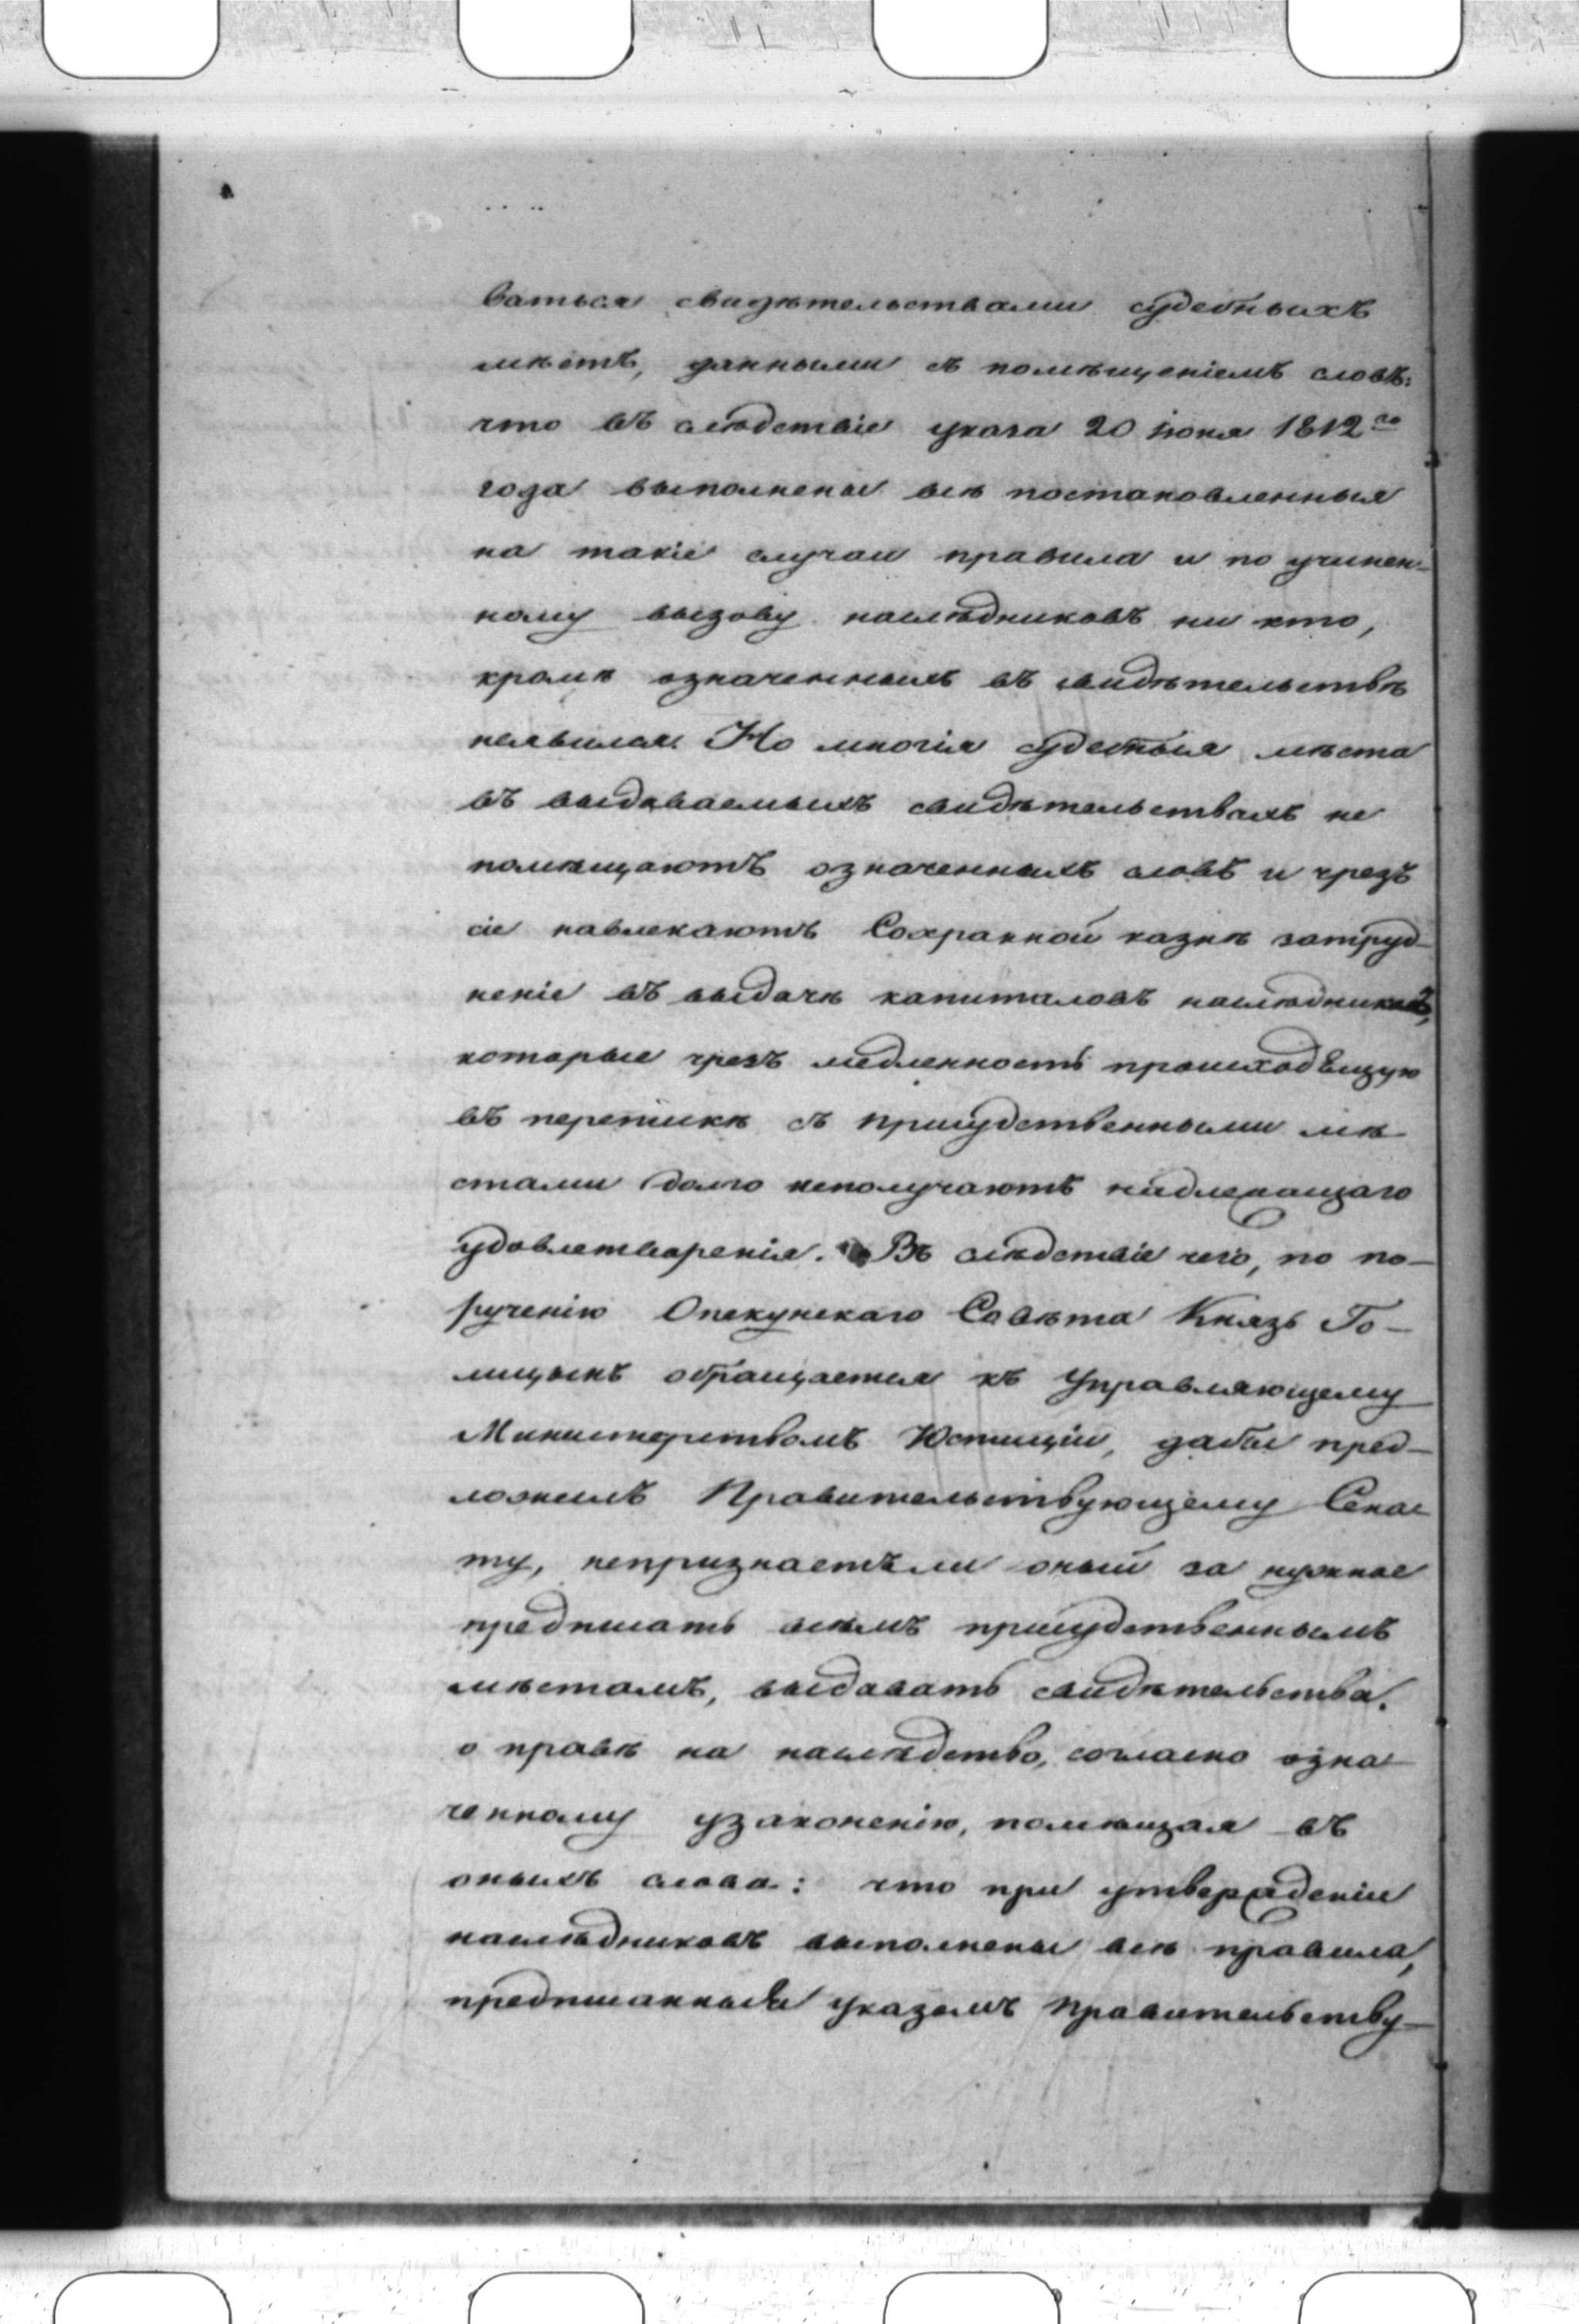 ваться свидѣтельствами судебныхъ
мѣстъ, данными съ помѣщеніемъ словъ:
что въ слѣдствіе указа 20 іюня 1812го
года выполнены всѣ постановленныя
на такіе случаи правила и по учинен-
ному вызову наслѣдниковъ ни кто,
кромѣ означенныхъ въ свидѣтельствѣ
неявился. Но многія судебныя мѣста
въ выдаваемыхъ свидѣтельствахъ не
помѣщаютъ означенныхъ словъ и чрезъ
сіе навлекаютъ Сохранной казнѣ затруд-
неніе въ выдачѣ капиталовъ наслѣдникамъ,
которые чрезъ медленность происходящую
въ перепискѣ съ присудственными мѣ-
стами долго неполучаютъ надлежащаго
удовлетворенія. Въ слѣдствіе чего, по по-
рученію Опекунскаго Совѣта Князь Го-
лицынъ обращается къ Управляющему
Министерствомъ Юстиціи, дабы пред-
ложилъ Правительствующему Сена-
ту, непризнаетъ ли оный за нужное
предписать всѣмъ присудственнымъ
мѣстамъ, выдавать свидѣтельства.
о правѣ на наслѣдство, согласно озна-
ченному узаконенію, помѣщая въ
оныхъ слова: что при утвержденіи
наслѣдниковъ выполнены всѣ правила,
предписанныя указомъ Правительству-